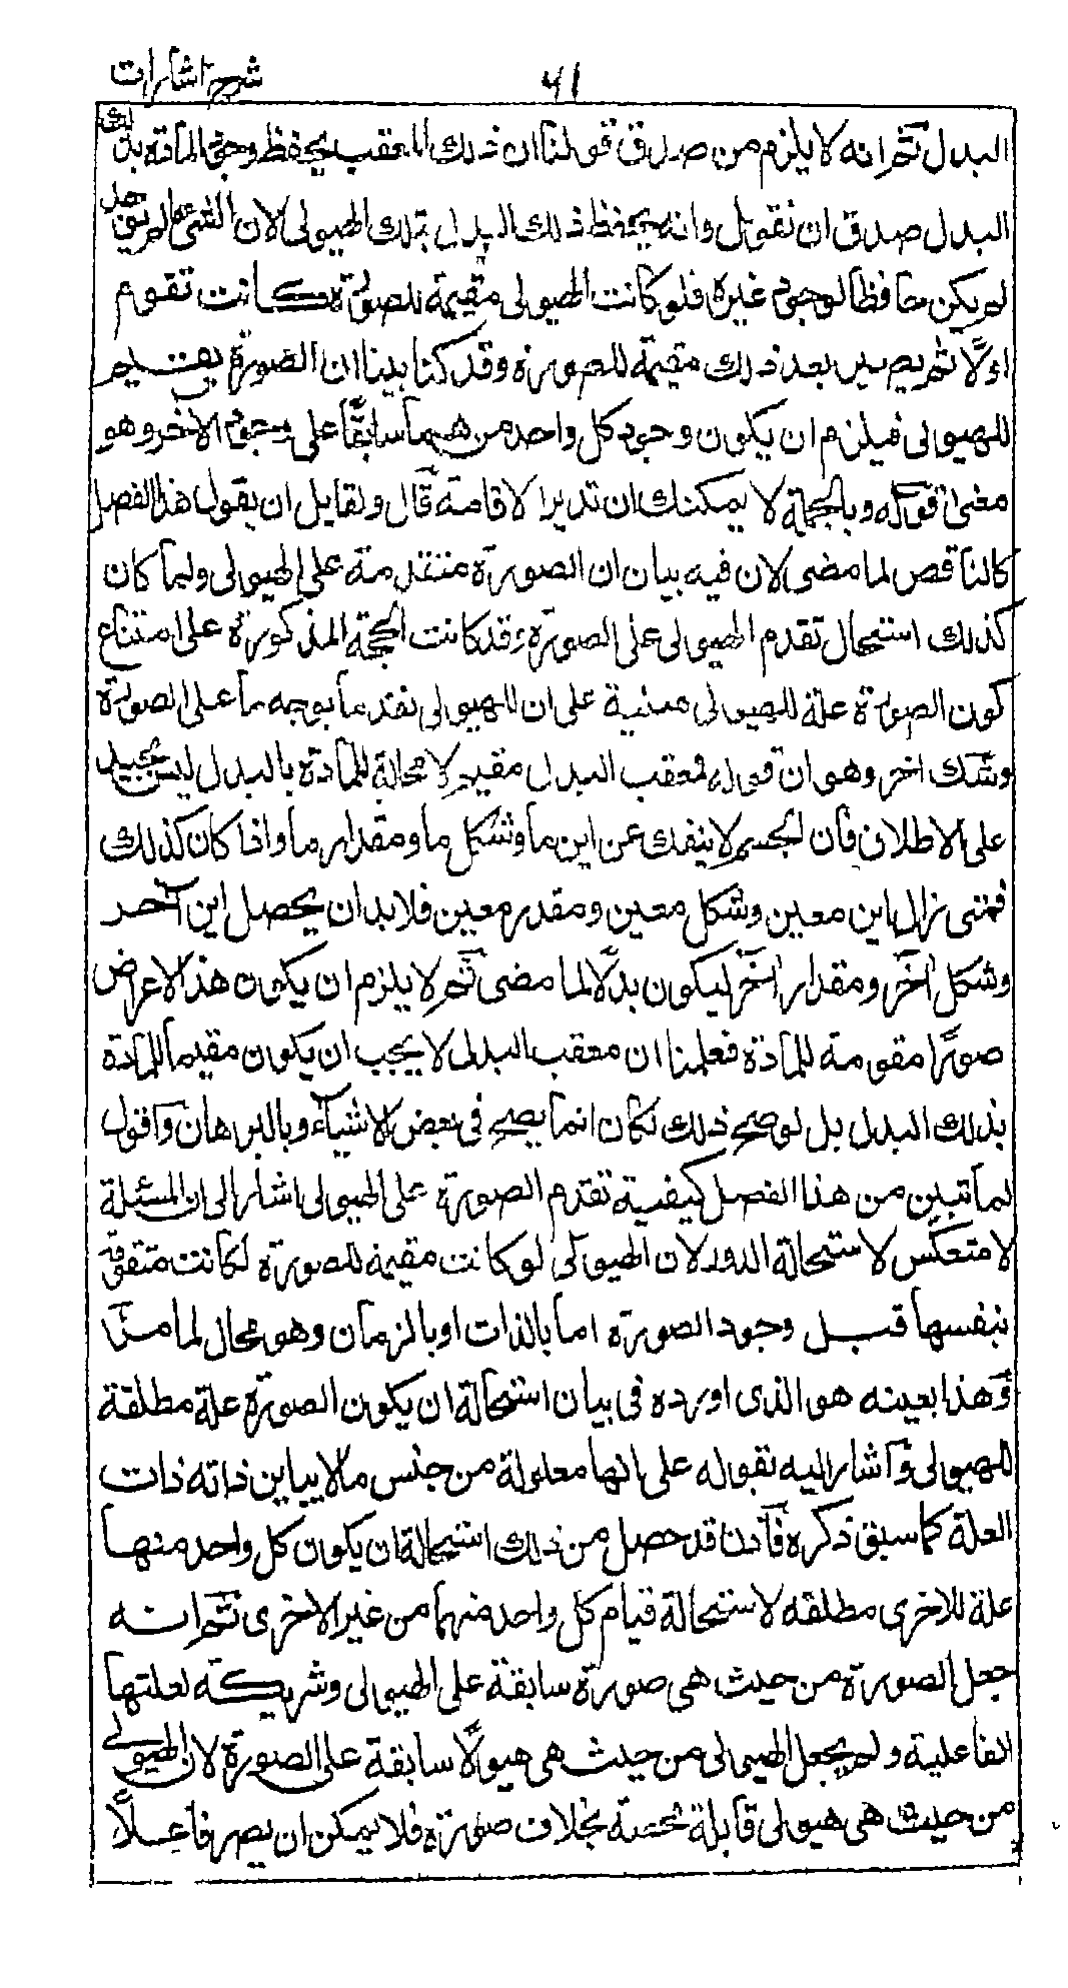 شرح اشارات
٦١
البدل ثم انه لا يلزم من صدق قولنا ان ذلك المعقب يحفظ وجود المادة بذلك
البدل صدق ان نقول وانه يحفظ ذلك البدل بتلك الهيولى لان الشئ ما لم يتحصل
لم يكن حافظا لوجود غيره فلو كانت الهيولى مقيمة للصورة لكانت تقوم
اولا ثم يصير بعد ذلك مقيمة للصورة وقد كنا بينا ان الصورة يقيم
للهيولى فيلزم ان يكون وجود كل واحد من هما سابقا على وجود الاخر وهو
معنى قوله وبالجملة لا يمكنك ان تدير الاقامة قال ولقايل ان يقول هذا الفصل
كالناقص لما مضى لان فيه بيان ان الصورة متقدمة على الهيولى ولما كان
كذلك استحال تقدم الهيولى على الصورة وقد كانت الحجة المذكورة على امتناع
كون الصورة علة للهيولى مبنية على ان للهيولى تقدما بوجه ما على الصورة
وشك اخر وهو ان قوله معقب البدل مقيم لا محالة للمادة بالبدل ليس بجيد
على الاطلاق فان الجسم لا ينفك عن اين ما وشكل ما ومقدار ما واذا كان كذلك
فمتى زال اين معين وشكل معين ومقدر معين فلا بد ان يحصل اين آخر
وشكل آخر ومقدار آخر ليكون بدلا لما مضى ثم لا يلزم ان يكون هذ الاعراض
صورا مقومة للمادة فعلمنا ان معقب البدل لا يجب ان يكون مقيما للمادة
بذلك البدل بل لو صح ذلك لكان انما يصح فى بعض الاشياء وبالبرهان واقول
لما تبين من هذا الفصل كيفية تقدم الصورة على الهيولى اشار الى ان المسئلة
لا متعكس لاستحالة الدور لان الهيولى لو كانت مقيمة للصورة لكانت متقومة
بنفسها قبل وجود الصورة اما بالذات او بالزمان وهو محال لما مر
وهذا بعينه هو الذى اورده فى بيان استحالة ان يكون الصورة علة مطلقة
للهيولى واشار اليه بقوله على انها معلولة من جنس مالا يباين ذاته ذات
العلة كما سبق ذكره فاذن قد حصل من ذلك استحالة ان يكون كل واحد منهما
علة للاخرى مطلقه لاستحالة قيام كل واحد منهما من غير الاخرى ثم انه
جعل الصورة من حيث هى صورة سابقة على الهيولى وشريكة لعلتها
الفاعلية ولم يجعل الهيولى من حيث هى هيولا سابقة على الصورة لان الهيولى
من حيث هى هيولى قابلة محضة بخلاف صورة فلا يمكن ان يصير فاعلا